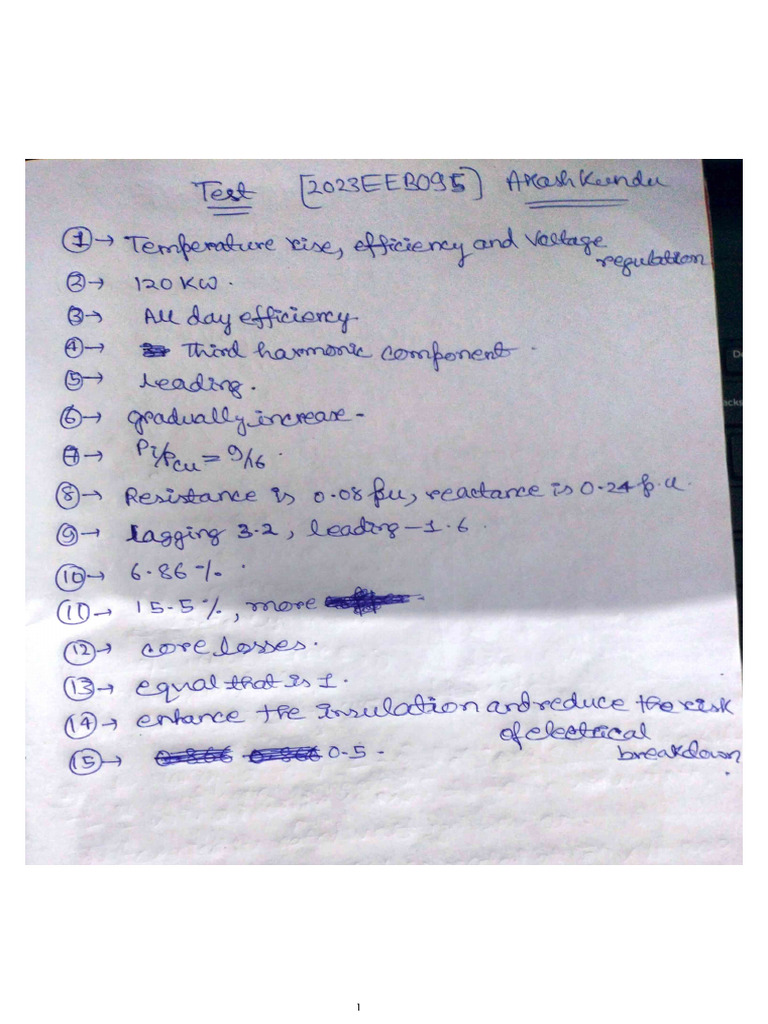 Test [2023EEB095] Akash Kundu
① → Temperature rise, efficiency and Voltage
regulation
② → 120 KW.
③ → All day efficiency
④ → Third harmonic component.
⑤ → Leading.
⑥ → gradually increase -
⑦ → Pi/Pcu = 9/16.
⑧ → Resistance is 0.08 pu, reactance is 0.24 p.u.
⑨ → Lagging 3.2, Leading -1.6.
⑩ → 6.86 %.
⑪ → 15.5 %, more
⑫ → core losses.
⑬ → equal that is 1.
⑭ → enhance the insulation and reduce the risk
of electrical
breakdown
⑮ → 0.866 0.866 0.5 -
1